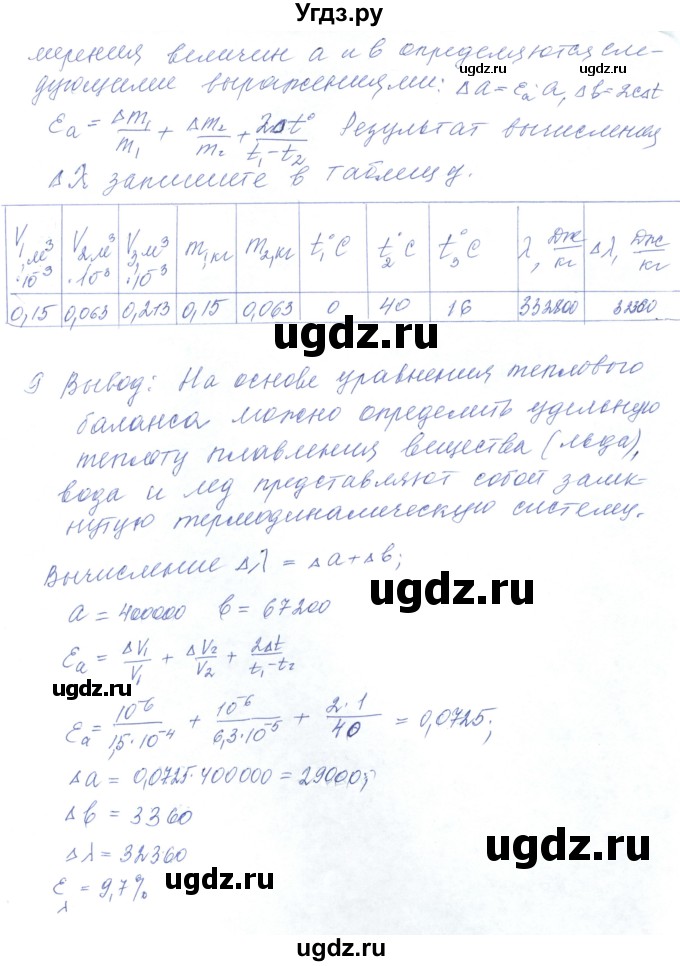 Угдз.ру
мерения величин a и в определяются сле-
дующими выражениями: Δa=εa·a, Δв=2cΔt
εa = Δm₁/m₁ + Δm₂/m₂ + 2Δt°/(t₁-t₂) Результат вычисления
Δλ запишите в таблицу.
V₁, м³ ·10³ | V₂ м³ ·10³ | V₃ м³ ·10³ | m₁, кг | m₂, кг | t₁°C | t₂°C | t₃°C | λ, Дж/кг | Δλ, Дж/кг
0,15 | 0,063 | 0,213 | 0,15 | 0,063 | 0 | 40 | 16 | 332800 | 32360
9 Вывод: На основе уравнения теплового
баланса можно определить удельную
теплоту плавления вещества (льда),
вода и лёд представляют собой замк-
нутую термодинамическую систему.
Вычисление Δλ = Δa+Δв;
a = 400000 в = 67200
εa = ΔV₁/V₁ + ΔV₂/V₂ + 2Δt/(t₁-t₂)
εa = 10⁻⁶/(1,5·10⁻⁴) + 10⁻⁶/(6,3·10⁻⁵) + 2·1/40 = 0,0725;
Δa = 0,0725·400000 = 29000;
Δв = 3360
Δλ = 32360
ελ = 9,7%
ugdz.ru
ugdz.ru
ugdz.ru
ugdz.ru
ugdz.ru
ugdz.ru
ugdz.ru
ugdz.ru
ugdz.ru
ugdz.ru